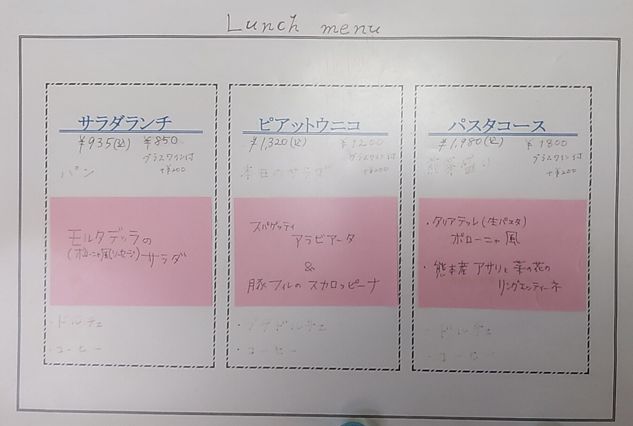 Lunch menu
サラダランチ
¥935(込) ¥850
グラスワイン付
+¥200
パン
モルタデッラの
(ボローニャ風ソーセージ) サラダ
・ドルチェ
・コーヒー
ピアットウニコ
¥1,320(込) ¥1200
グラスワイン付
+¥200
本日のサラダ
スパゲッティ
アラビアータ
&
豚フィレの スカロッピーナ
・プチドルチェ
・コーヒー
パスタコース
¥1,980(込) ¥1800
グラスワイン付
+¥200
前菜盛り
・タリアテッレ(生パスタ)
ボローニャ風
・熊本産 アサリと菜の花の
リングエッティーネ
・ドルチェ
・コーヒー